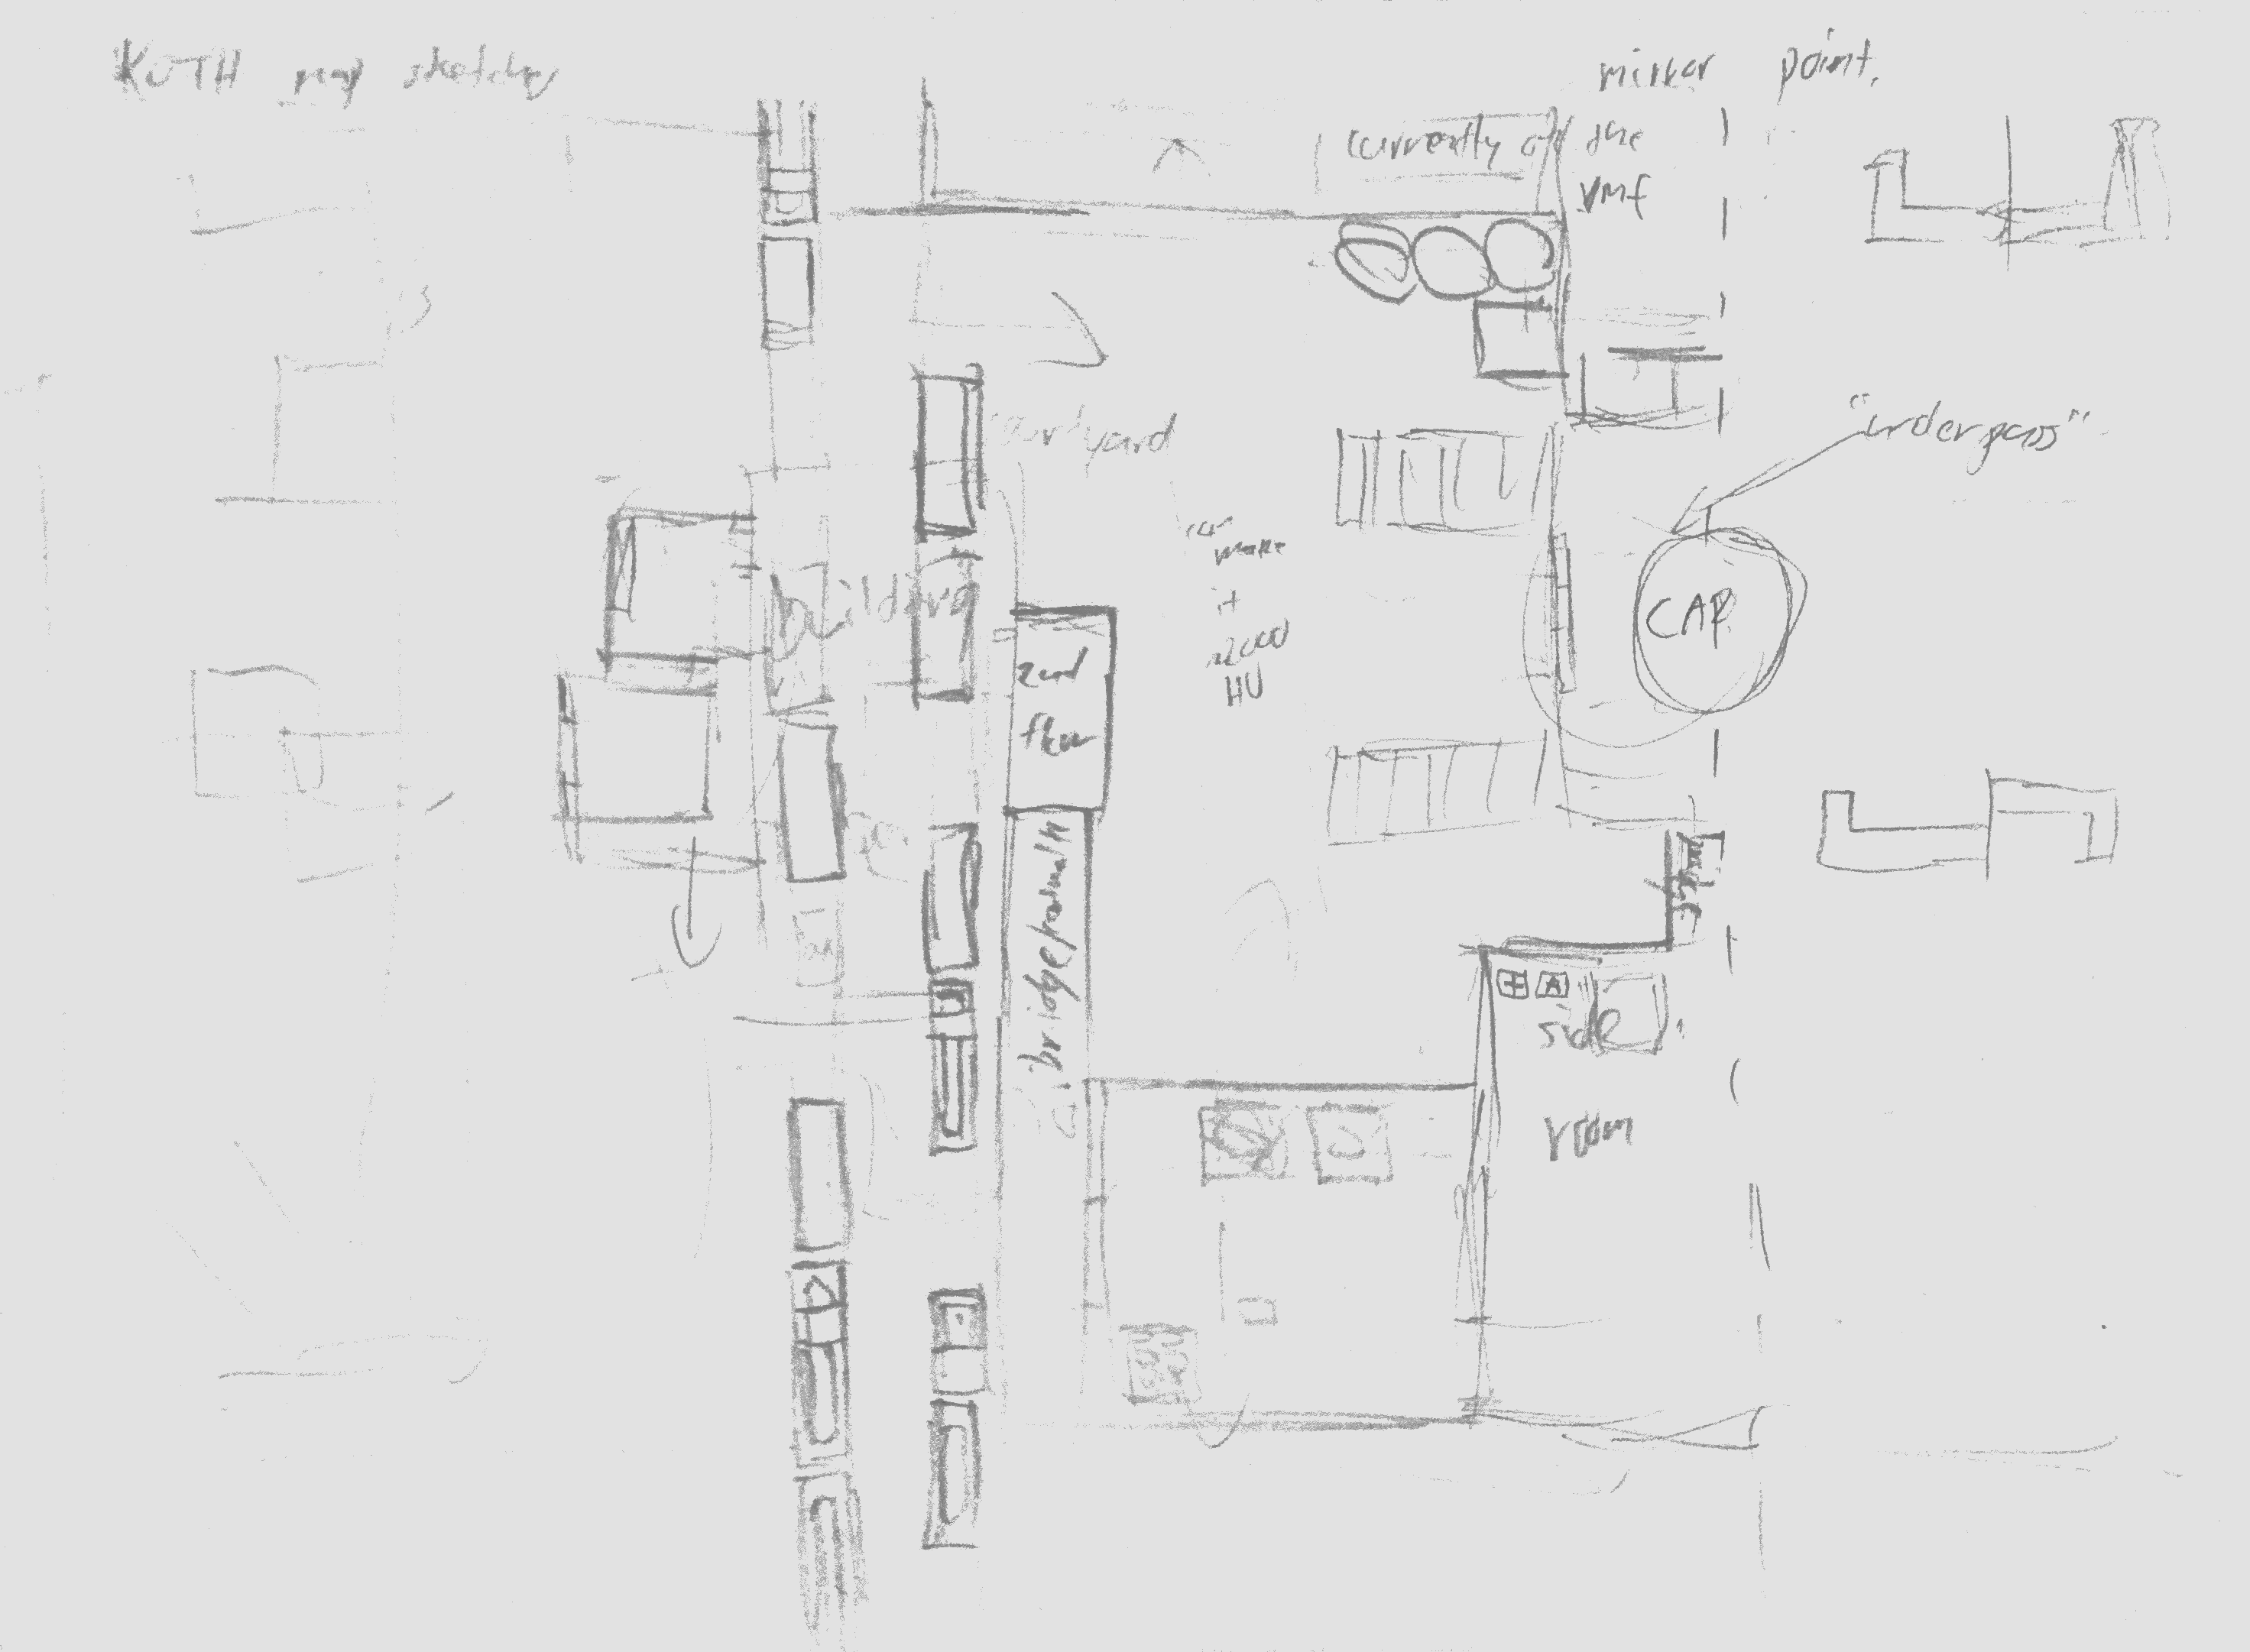 KOTH map sketches
mirror point.
currently on the
vmf
courtyard
"underpass"
"make
it
HU
building
CAP
2nd
floor
bridge/catwalk
side
room
A